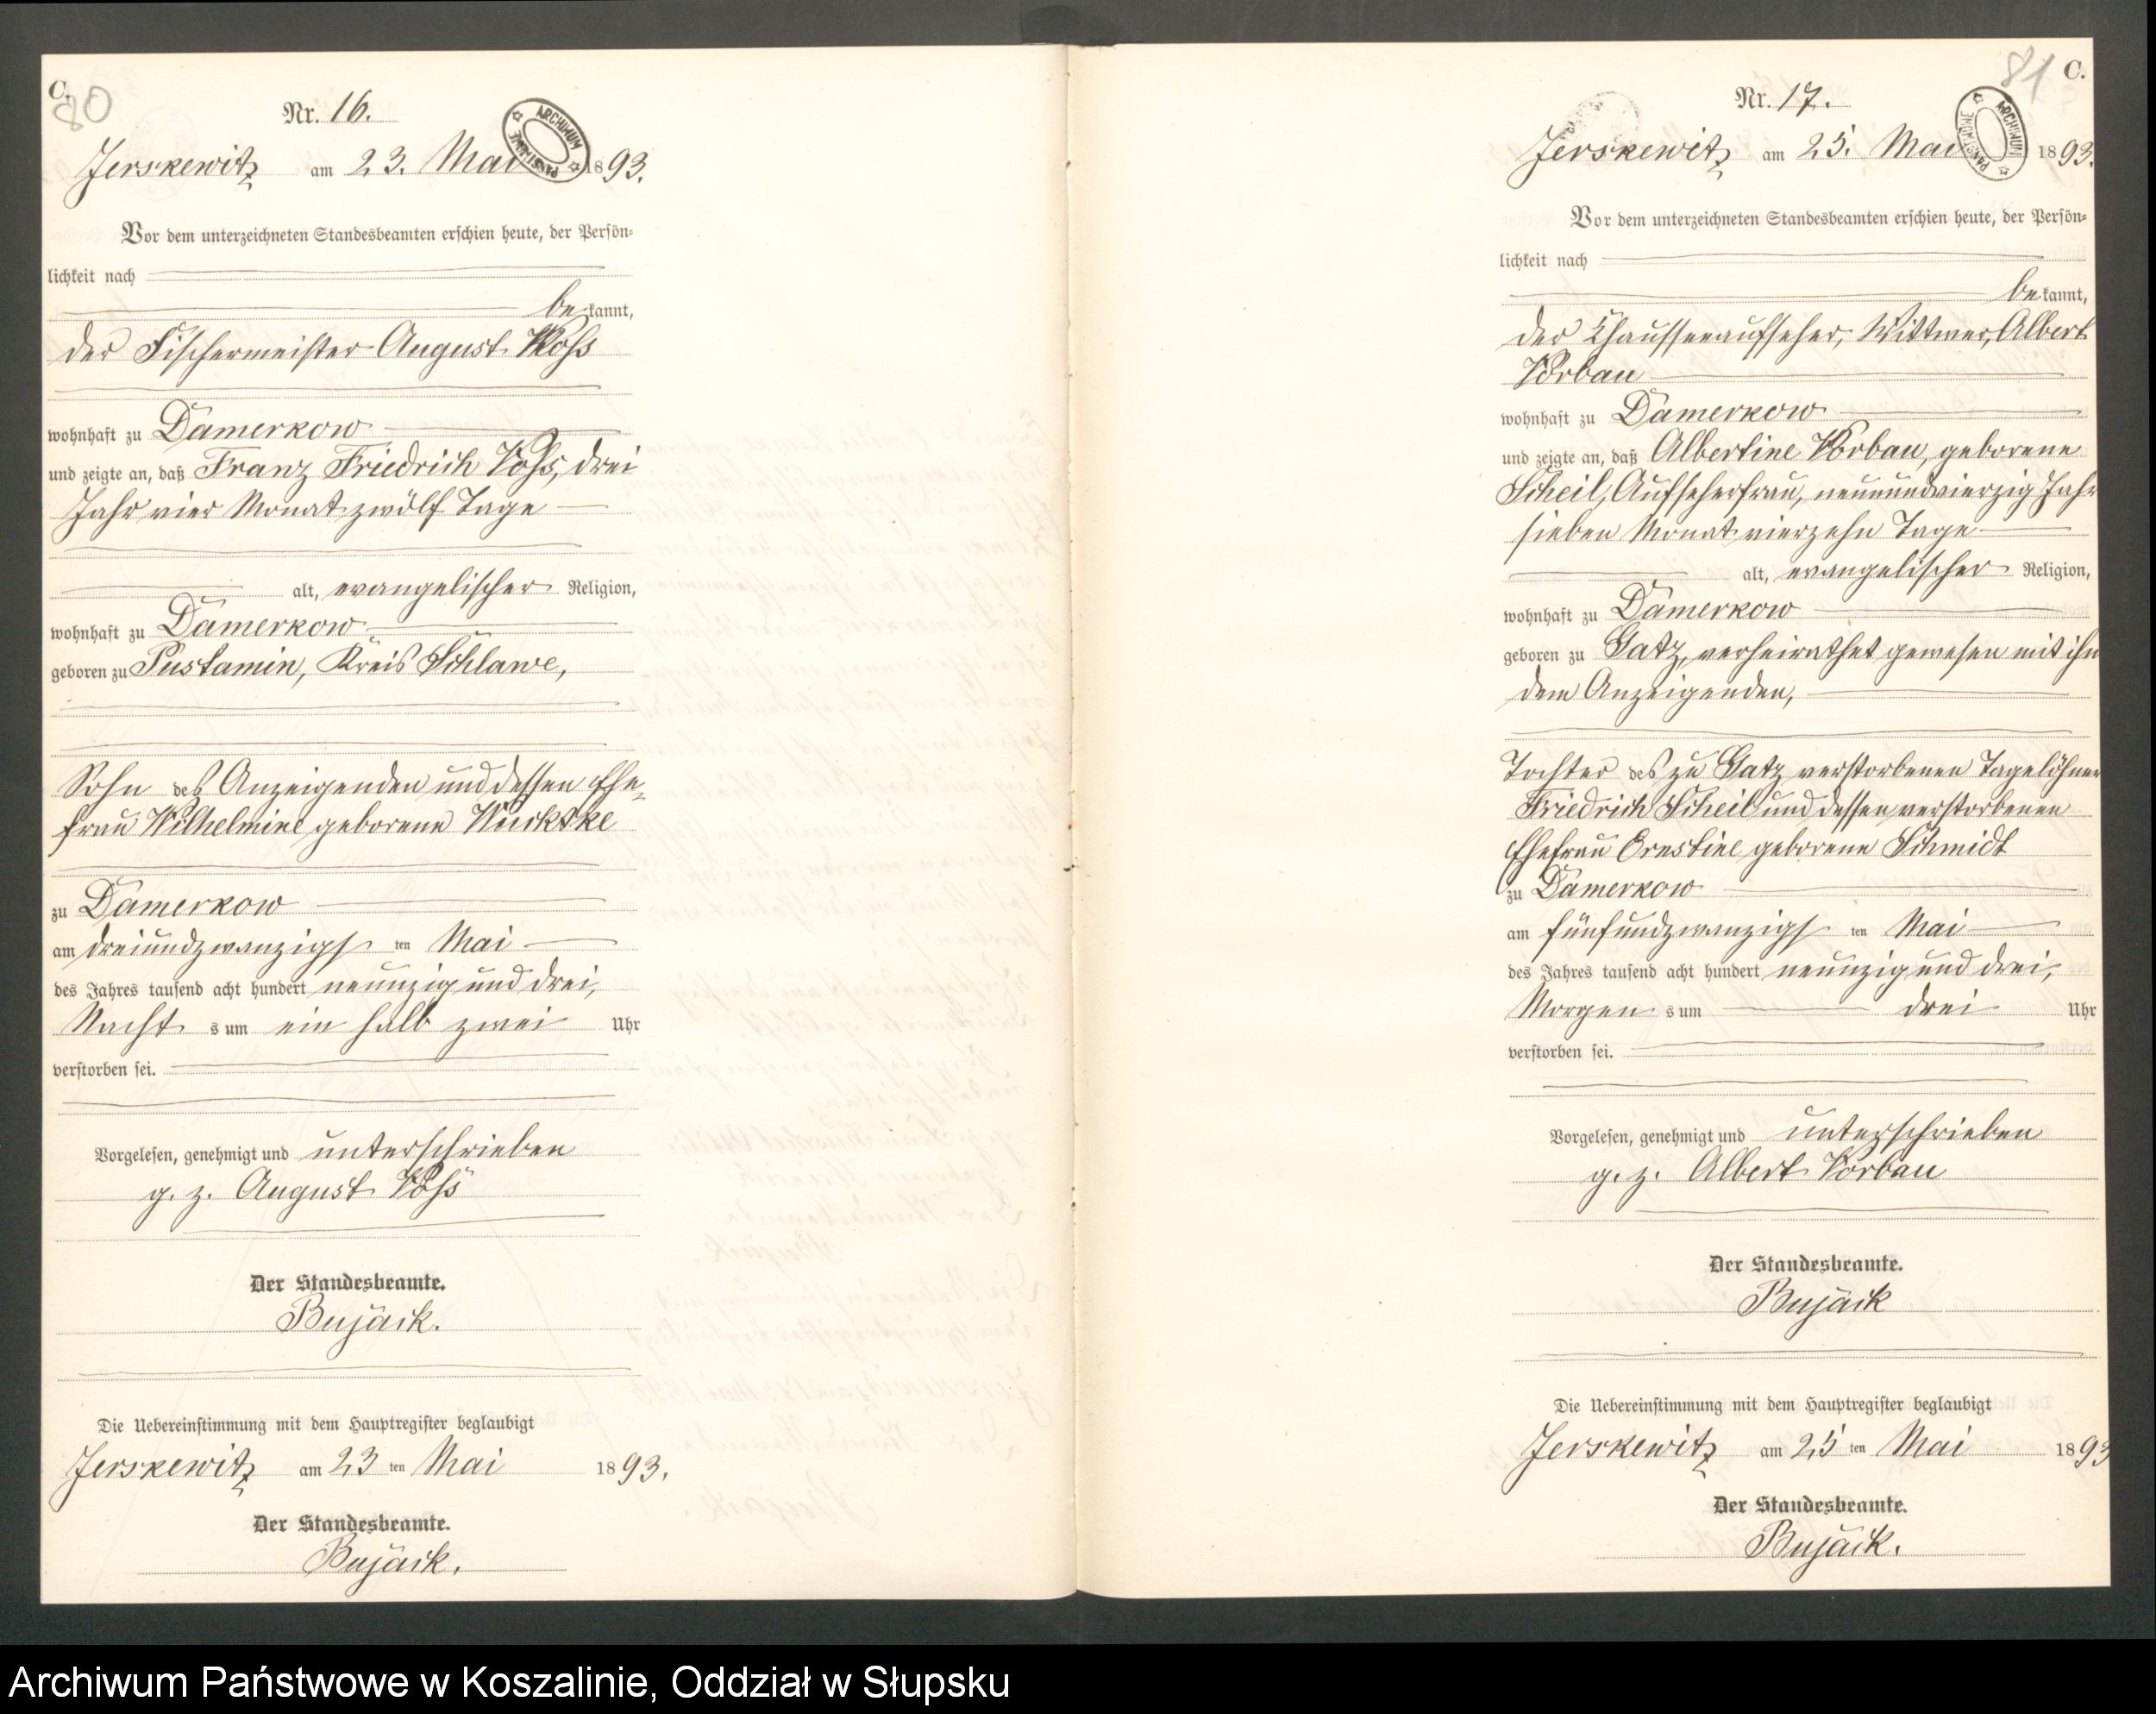 C.
80
Nr. 16.
ARCHIWUM PAŃSTWOWE
Jerskewitz am 23. Mai 1893.
Vor dem unterzeichneten Standesbeamten erschien heute, der Persön-
lichkeit nach
be kannt,
der Fischermeister August Voss
wohnhaft zu Damerkow
und zeigte an, daß Franz Friedrich Voss, drei
Jahr vier Monat zwölf Tage
alt, evangelischer Religion,
wohnhaft zu Damerkow
geboren zu Pustamin, Kreis Schlawe,
Sohn des Anzeigenden und dessen Ehe-
frau Wilhelmine geborene
zu Damerkow
am dreiundzwanzigs ten Mai
des Jahres tausend acht hundert neunzig und drei,
Nacht s um ein halb zwei Uhr
verstorben sei.
Vorgelesen, genehmigt und unterschrieben
g. z. August Voss
Der Standesbeamte.
Bujack.
Die Uebereinstimmung mit dem Hauptregister beglaubigt
Jerskewitz am 23 ten Mai 1893.
Der Standesbeamte.
Bujack.
81 C.
Nr. 17.
ARCHIWUM PAŃSTWOWE
Jerskewitz am 25. Mai 1893.
Vor dem unterzeichneten Standesbeamten erschien heute, der Persön-
lichkeit nach
be kannt,
der Chausseeaufseher, Wittwer, Albert
Vorbau
wohnhaft zu Damerkow
und zeigte an, daß Albertine Vorbau, geborene
Scheil, Aufseherfrau, neunundvierzig Jahr
sieben Monat vierzehn Tage
alt, evangelischer Religion,
wohnhaft zu Damerkow
geboren zu Gatz, verheirathet gewesen mit ihm
dem Anzeigenden,
Tochter des zu Gatz verstorbenen Tagelöhner
Friedrich Scheil und dessen verstorbenen
Ehefrau Ernstine geborene Schmidt
zu Damerkow
am fünfundzwanzigs ten Mai
des Jahres tausend acht hundert neunzig und drei,
Morgen s um drei Uhr
verstorben sei.
Vorgelesen, genehmigt und unterschrieben
g. z. Albert Vorbau
Der Standesbeamte.
Bujack
Die Uebereinstimmung mit dem Hauptregister beglaubigt
Jerskewitz am 25 ten Mai 1893
Der Standesbeamte.
Bujack.
Archiwum Państwowe w Koszalinie, Oddział w Słupsku